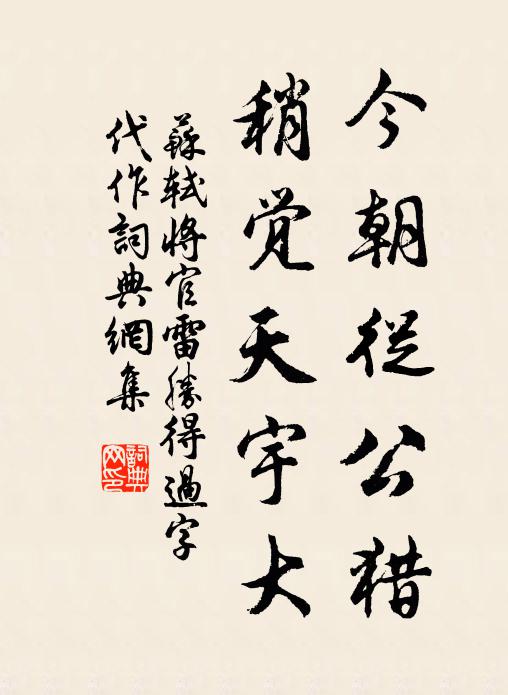 今朝從公猎
稍觉天宇大
蘇軾將官雷勝得過字
代作詞典網集
詞典網印